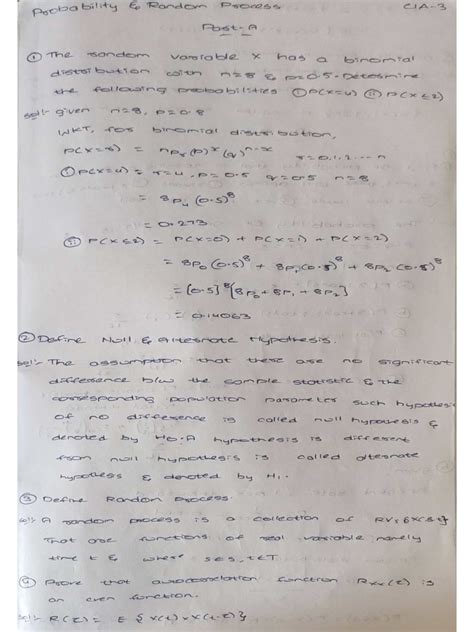 Probability & Random Process CIA-3
Part-A
① The random variable X has a binomial
distribution with n=8 & p=0.5. Determine
the following probabilities ① P(X=4) ② P(X≤2)
Sol:- given n=8, p=0.8
WKT, for binomial distribution,
P(X=r) = nPr (p)^r (q)^n-x
r=0,1,2...n
① P(X=4) = r=4, p=0.5 q=0.5 n=8
= 8P4 (0.5)^8
= 0.273
② P(X≤2) = P(X=0) + P(X=1) + P(X=2)
= 8P0 (0.5)^8 + 8P1 (0.5)^8 + 8P2 (0.5)^8
= [0.5]^8 [8P0 + 8P1 + 8P2]
= 0.14063
② Define Null & Alternate Hypothesis.
Sol:- The assumption that there are no significant
difference b/w the sample statistic & the
corresponding population parameter such hypothesis
of no difference is called null hypothesis &
denoted by H0. A hypothesis is different
from null hypothesis is called alternate
hypothesis & denoted by H1.
③ Define Random Process
Sol:- A random process is a collection of RVs
That are functions of real variable namely
time t & where s∈S, t∈T
④ Prove that autocorrelation function Rxx(τ) is
an even function.
Sol:- R(τ) = E {X(t) x X(t-τ)}